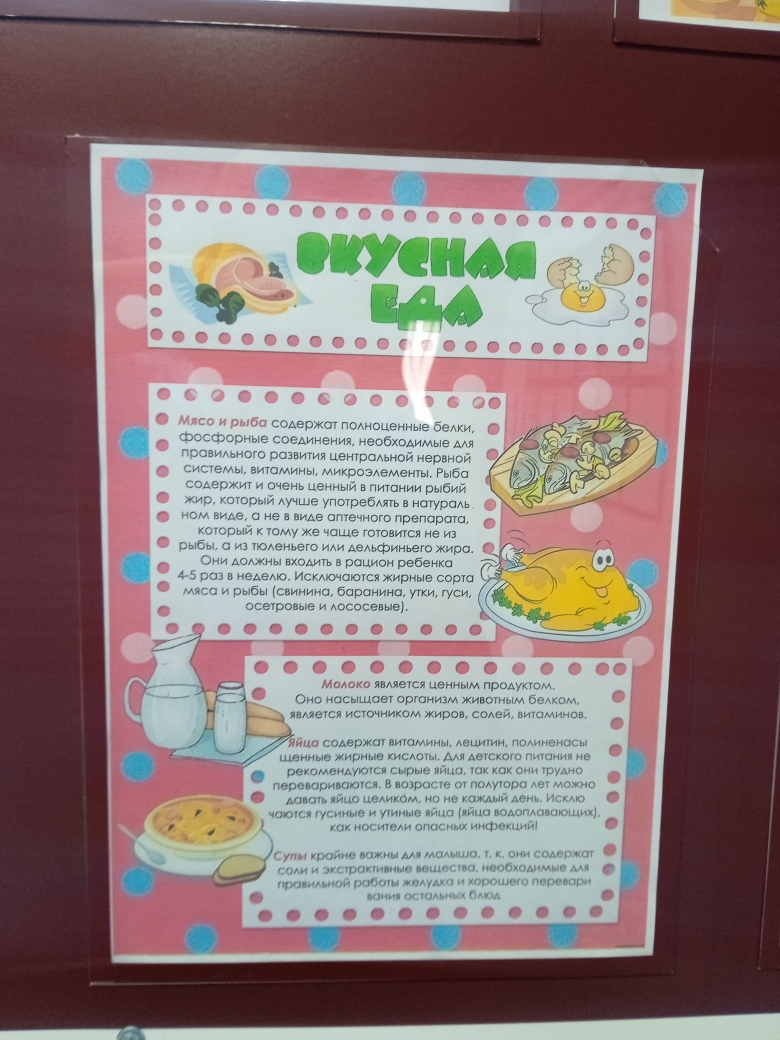 ВКУСНАЯ
ЕДА
Мясо и рыба содержат полноценные белки,
фосфорные соединения, необходимые для
правильного развития центральной нервной
системы, витамины, микроэлементы. Рыба
содержит и очень ценный в питании рыбий
жир, который лучше употреблять в натураль
ном виде, а не в виде аптечного препарата,
который к тому же чаще готовится не из
рыбы, а из тюленьего или дельфиньего жира.
Они должны входить в рацион ребенка
4-5 раз в неделю. Исключаются жирные сорта
мяса и рыбы (свинина, баранина, утки, гуси,
осетровые и лососевые).
Молоко является ценным продуктом.
Оно насыщает организм животным белком,
является источником жиров, солей, витаминов.
Яйца содержат витамины, лецитин, полиненасы
щенные жирные кислоты. Для детского питания не
рекомендуются сырые яйца, так как они трудно
перевариваются. В возрасте от полутора лет можно
давать яйцо целиком, но не каждый день. Исклю
чаются гусиные и утиные яйца (яйца водоплавающих),
как носители опасных инфекций!
Супы крайне важны для малыша, т. к. они содержат
соли и экстрактивные вещества, необходимые для
правильной работы желудка и хорошего перевари
вания остальных блюд